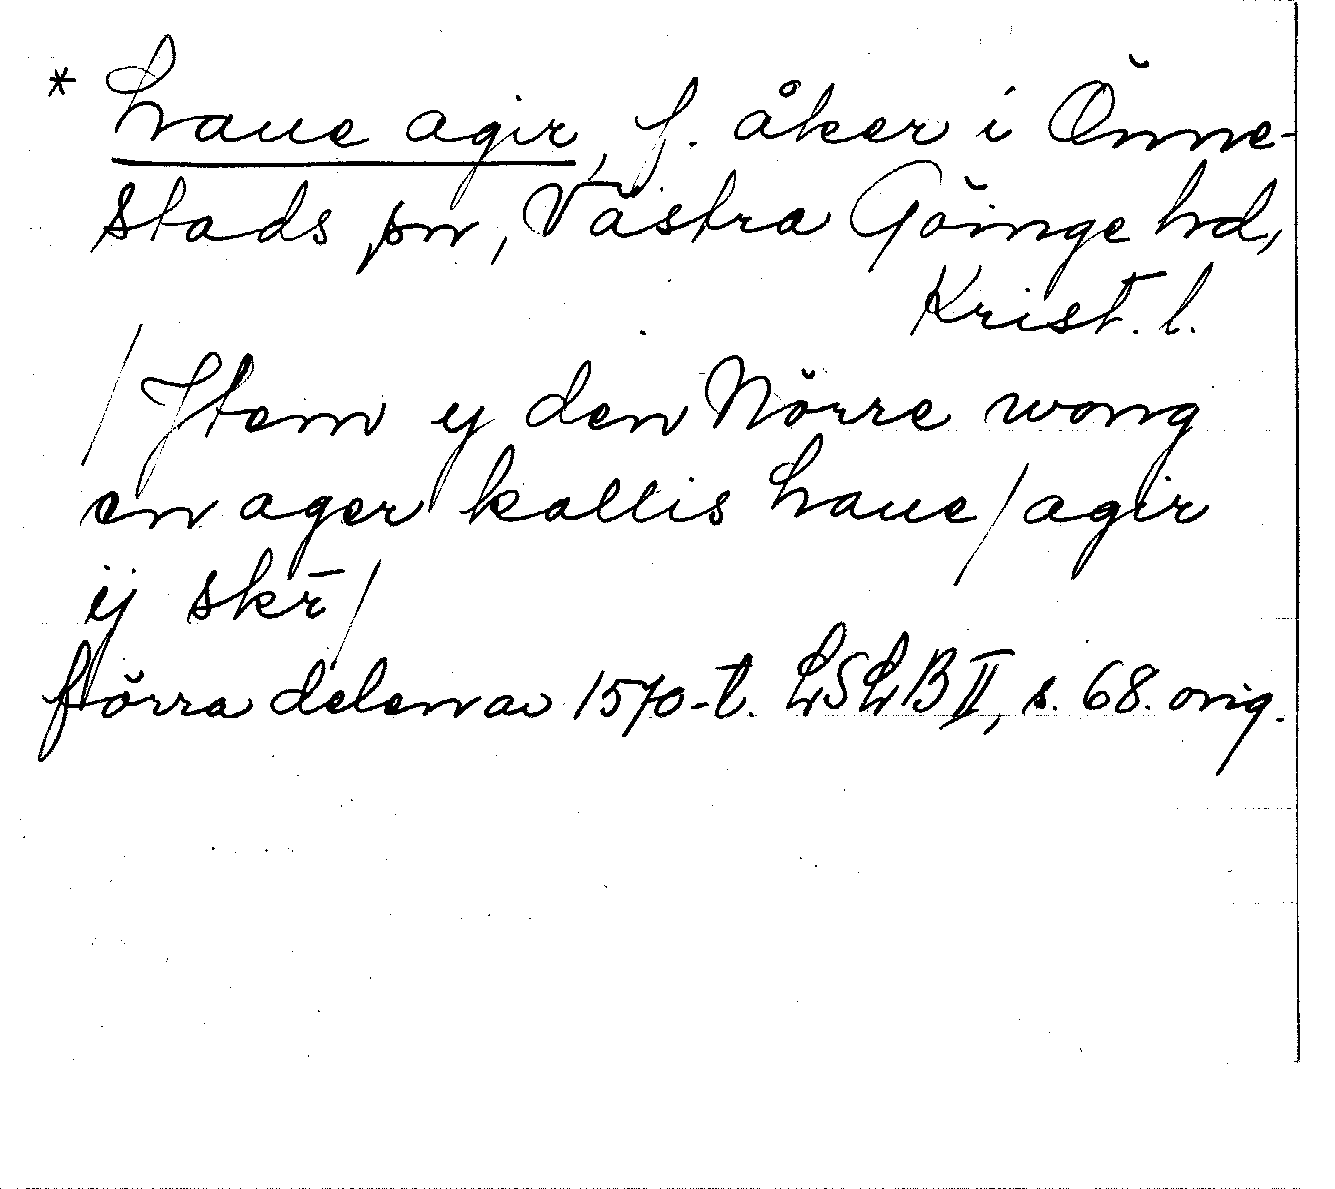 * haue agir, f. åker i Önne-
stads sn, Västra Göinge hd,
Krist. l.
/ Jtem y den Nörre wong
en ager kallis haue/agir
ij skr̄/
förra delen av 1570-t. LSLB II, s. 68. orig.